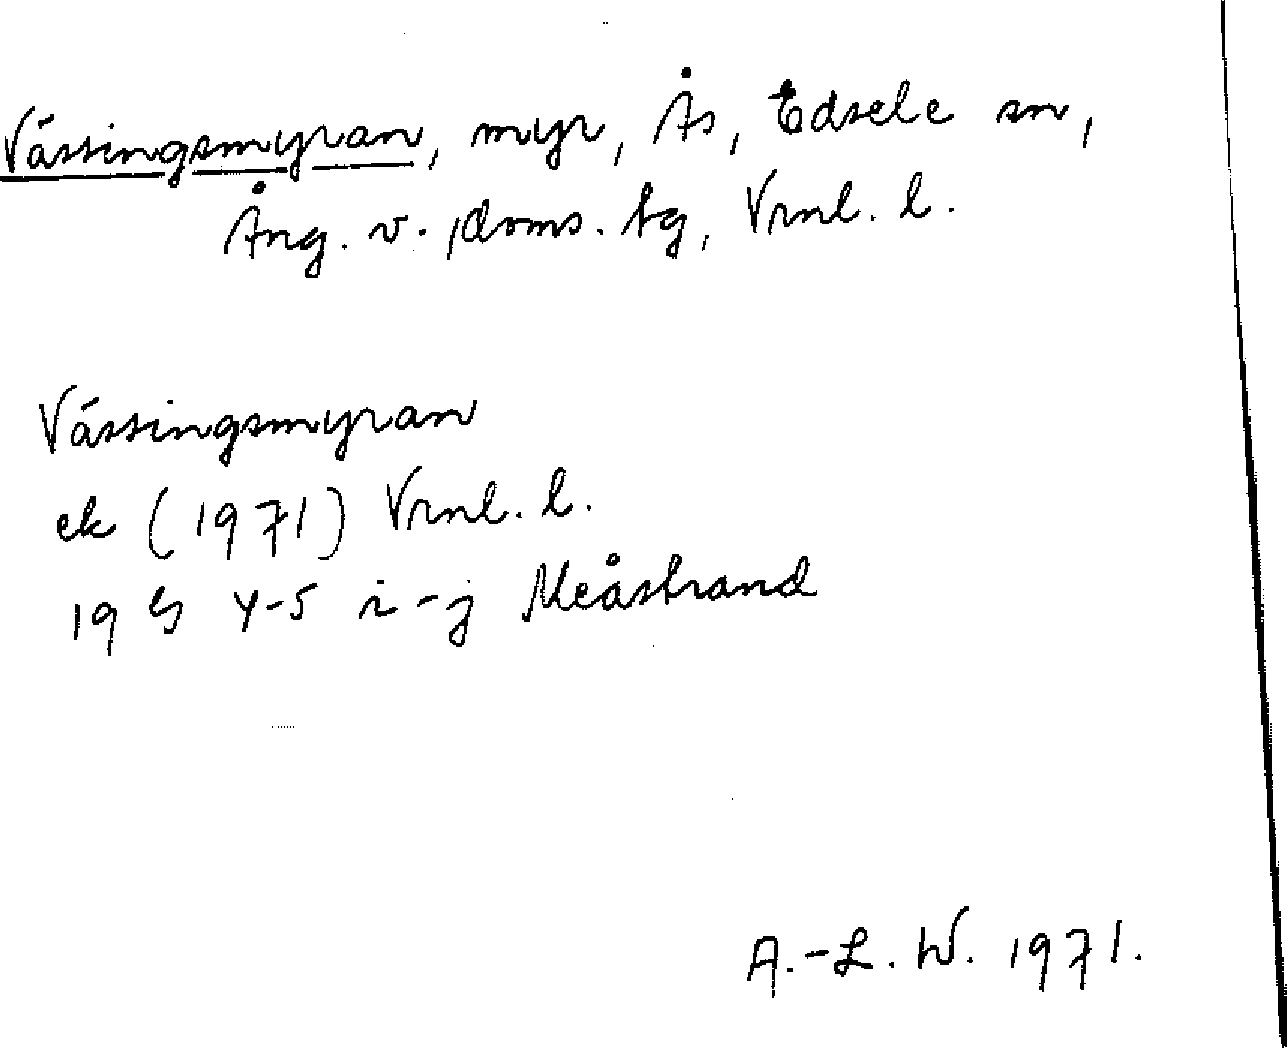 Västingsmyran, myr, Ås, Edsele sn,
Ång. v. doms. tg, Vrnl. l.
Västingsmyran
ek (1971) Vrnl. l.
19 G 4-5 i-j Meåstrand
A.-L. W. 1971.